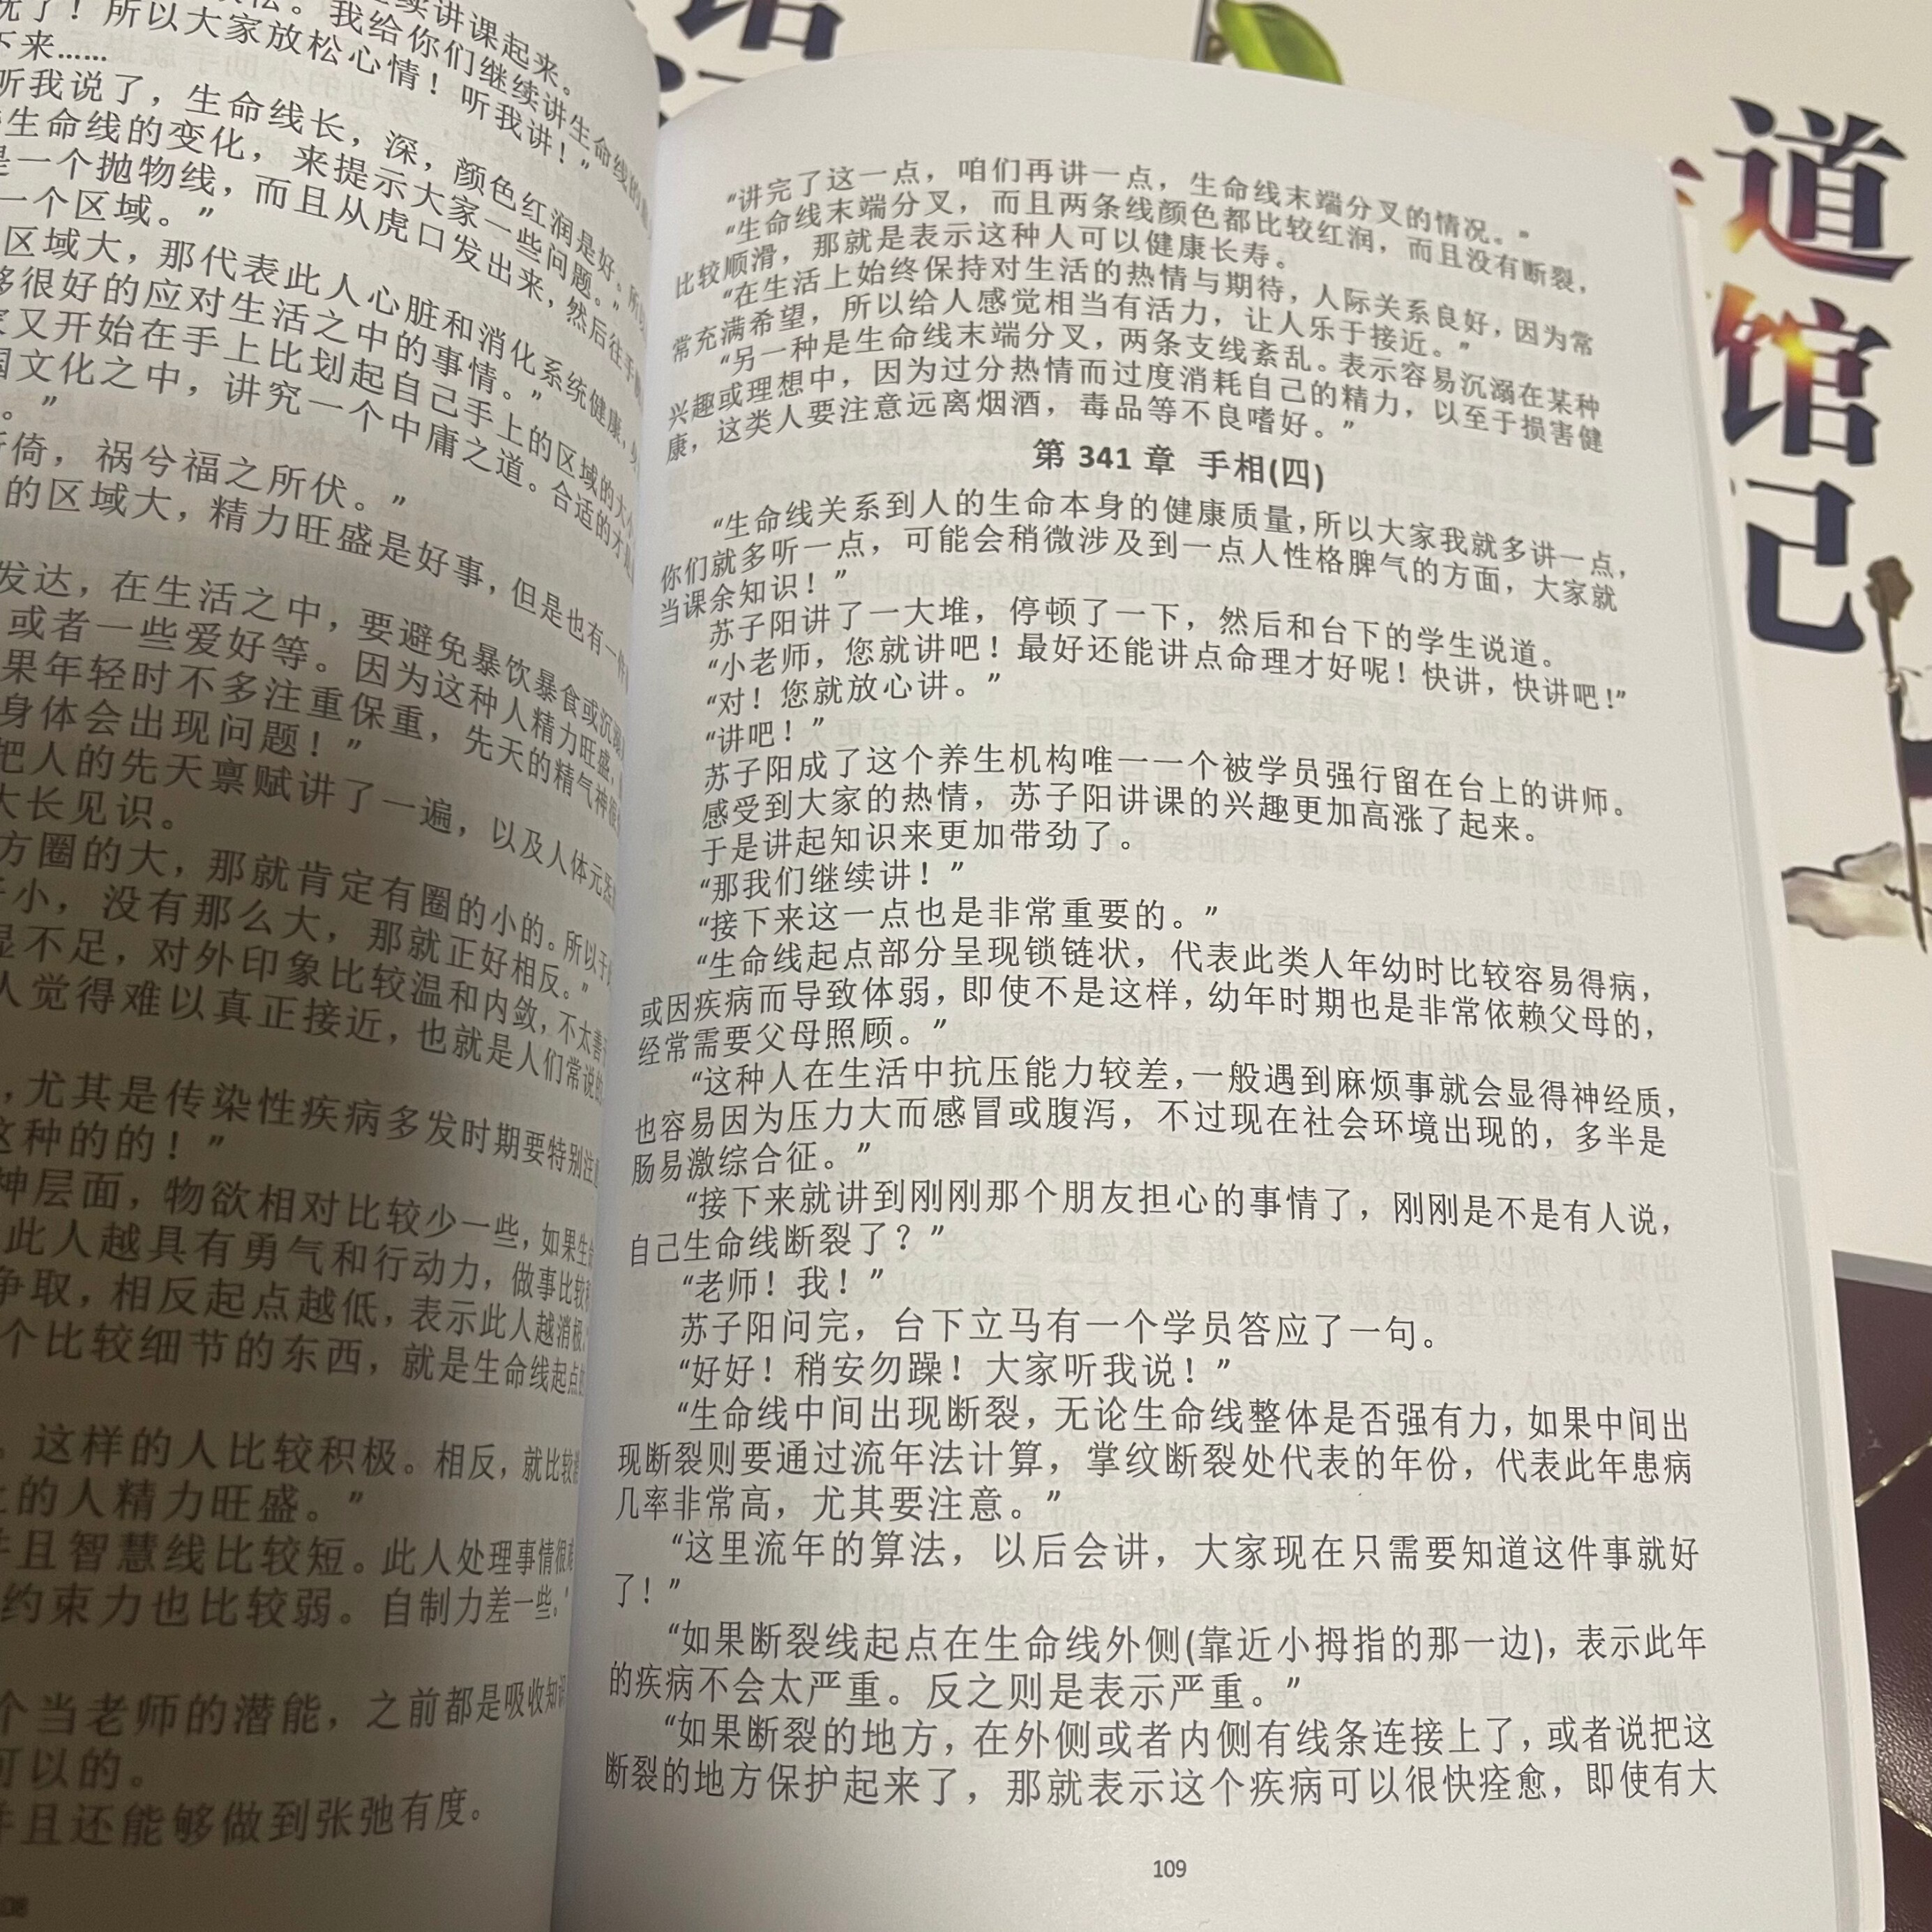 续讲课起来。
我给你们继续讲生命线的
了！所以大家放松心情！听我讲！”
下来……
听我说了，生命线长，深，颜色红润是好。所以
生命线的变化，来提示大家一些问题。”
是一个抛物线，而且从虎口发出来，然后往手
一个区域。”
区域大，那代表此人心脏和消化系统健康，
够很好的应对生活之中的事情。”
家又开始在手上比划起自己手上的区域的大小
国文化之中，讲究一个中庸之道。合适的才是
。”
所倚，祸兮福之所伏。”
的区域大，精力旺盛是好事，但是也有一件
发达，在生活之中，要避免暴饮暴食或沉溺
或者一些爱好等。因为这种人精力旺盛，
果年轻时不多注重保重，先天的精气神很
身体会出现问题！”
把人的先天禀赋讲了一遍，以及人体元炁
大长见识。
方圈的大，那就肯定有圈的小的。所以于
于小，没有那么大，那就正好相反。”
显不足，对外印象比较温和内敛，不太善
人觉得难以真正接近，也就是人们常说的
，尤其是传染性疾病多发时期要特别注意
这种的的！”
神层面，物欲相对比较少一些，如果生命
此人越具有勇气和行动力，做事比较积
争取，相反起点越低，表示此人越消极，
个比较细节的东西，就是生命线起点的
。这样的人比较积极。相反，就比较消
上的人精力旺盛。”
并且智慧线比较短。此人处理事情很难
约束力也比较弱。自制力差一些。”
个当老师的潜能，之前都是吸收知识
可以的。
并且还能够做到张弛有度。
“讲完了这一点，咱们再讲一点，生命线末端分叉的情况。”
“生命线末端分叉，而且两条线颜色都比较红润，而且没有断裂，
比较顺滑，那就是表示这种人可以健康长寿。
“在生活上始终保持对生活的热情与期待，人际关系良好，因为常
常充满希望，所以给人感觉相当有活力，让人乐于接近。”
“另一种是生命线末端分叉，两条支线紊乱。表示容易沉溺在某种
兴趣或理想中，因为过分热情而过度消耗自己的精力，以至于损害健
康，这类人要注意远离烟酒，毒品等不良嗜好。”
第 341 章 手相(四)
“生命线关系到人的生命本身的健康质量，所以大家我就多讲一点，
你们就多听一点，可能会稍微涉及到一点人性格脾气的方面，大家就
当课余知识！”
苏子阳讲了一大堆，停顿了一下，然后和台下的学生说道。
“小老师，您就讲吧！最好还能讲点命理才好呢！快讲，快讲吧！”
“对！您就放心讲。”
“讲吧！”
苏子阳成了这个养生机构唯一一个被学员强行留在台上的讲师。
感受到大家的热情，苏子阳讲课的兴趣更加高涨了起来。
于是讲起知识来更加带劲了。
“那我们继续讲！”
“接下来这一点也是非常重要的。”
“生命线起点部分呈现锁链状，代表此类人年幼时比较容易得病，
或因疾病而导致体弱，即使不是这样，幼年时期也是非常依赖父母的，
经常需要父母照顾。”
“这种人在生活中抗压能力较差，一般遇到麻烦事就会显得神经质，
也容易因为压力大而感冒或腹泻，不过现在社会环境出现的，多半是
肠易激综合征。”
“接下来就讲到刚刚那个朋友担心的事情了，刚刚是不是有人说，
自己生命线断裂了？”
“老师！我！”
苏子阳问完，台下立马有一个学员答应了一句。
“好好！稍安勿躁！大家听我说！”
“生命线中间出现断裂，无论生命线整体是否强有力，如果中间出
现断裂则要通过流年法计算，掌纹断裂处代表的年份，代表此年患病
几率非常高，尤其要注意。”
“这里流年的算法，以后会讲，大家现在只需要知道这件事就好
了！”
“如果断裂线起点在生命线外侧(靠近小拇指的那一边)，表示此年
的疾病不会太严重。反之则是表示严重。”
“如果断裂的地方，在外侧或者内侧有线条连接上了，或者说把这
断裂的地方保护起来了，那就表示这个疾病可以很快痊愈，即使有大
109
道
馆
记
馆